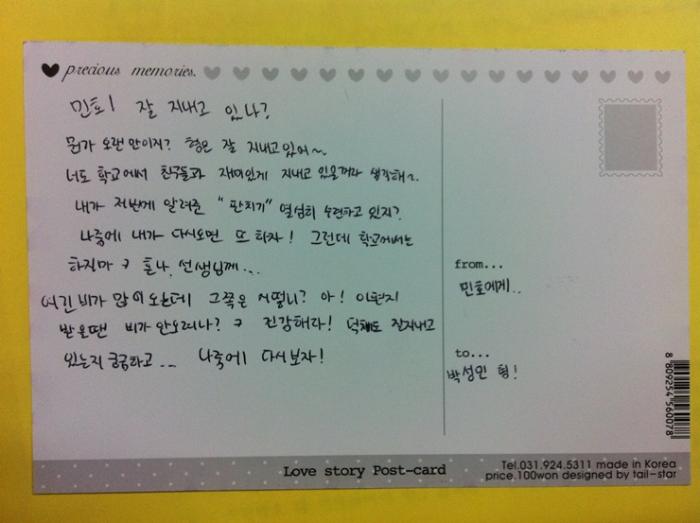 precious memories.
민호! 잘 지내고 있나?
뭔가 오랜만이지? 형은 잘 지내고있어~
너도 학교에서 친구들과 재미있게 지내고 있을꺼라 생각해~.
내가 저번에 알려준 "딱지기" 열심히 수련하고 있지?
나중에 내가 다시오면 또 하자! 그런데 학교에서는
하지마 ㅋ 혼나. 선생님께...
여긴 비가 많이 오는데 그쪽은 어떻니? 아! 이편지
받을땐 비가 안오려나? ㅋ 건강해라! 덕해도 잘지내고
있는지 궁금하고... 나중에 다시보자!
from...
민호에게..
to...
박성민 형!
8 809254 560078
Love story Post-card
Tel.031.924.5311 made in Korea
price.100won designed by tail-star